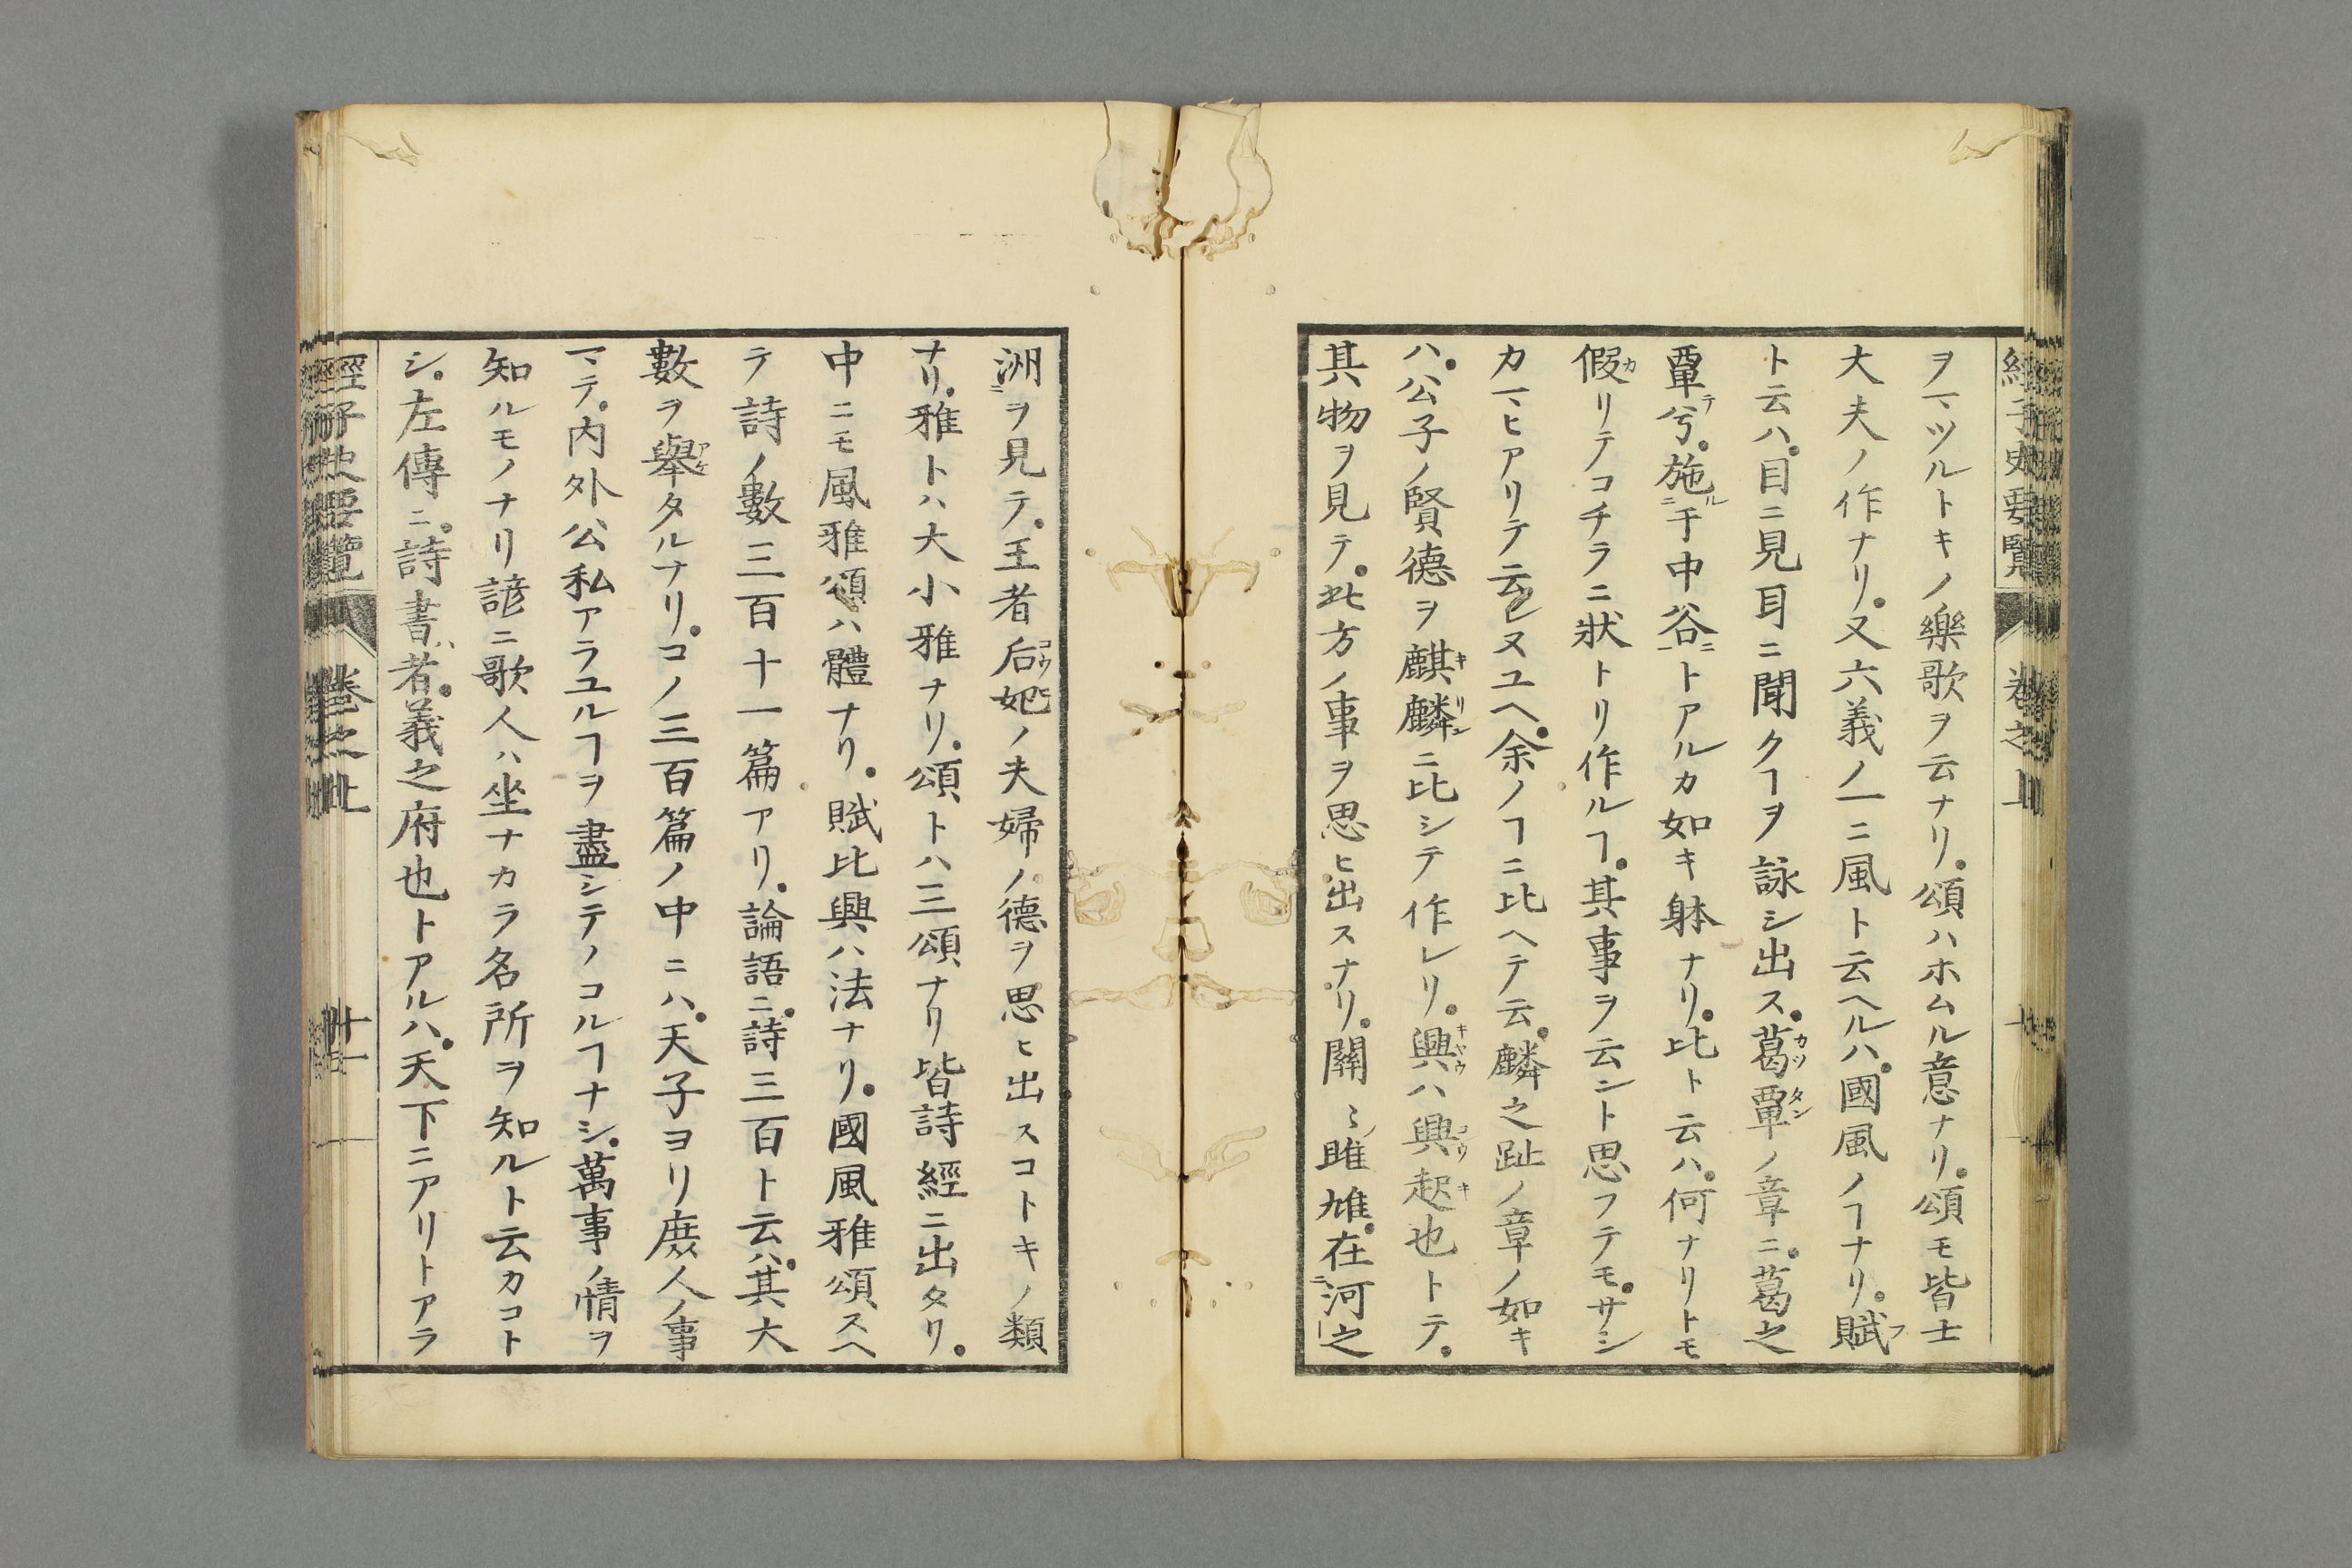 經子史要覽 卷之上 十
ヲマツルトキノ樂歌ヲ云ナリ。頌ハホムル意ナリ。頌モ皆士
大夫ノ作ナリ。又六義ノ一ニ風ト云ヘルハ。國風ノヿナリ。賦
ト云ハ。目ニ見耳ニ聞クヿヲ詠シ出ス。葛覃ノ章ニ。葛之
覃兮。施于中谷トアルカ如キ躰ナリ。比ト云ハ。何ナリトモ
假リテコチラニ狀トリ作ルヿ。其事ヲ云ント思フテモ。サシ
カマヒアリテ云レヌユヘ。余ノヿニ比ヘテ云。麟之趾ノ章ノ如キ
ハ。公子ノ賢德ヲ麒麟ニ比シテ作レリ。興ハ興起也トテ。
其物ヲ見テ。此方ノ事ヲ思ヒ出スナリ。關〻雎雄。在河之
洲ヲ見テ。王者后妃ノ夫婦ノ德ヲ思ヒ出スコトキノ類
ナリ。雅トハ大小雅ナリ。頌トハ三頌ナリ皆詩經ニ出タリ。
中ニモ風雅頌ハ體ナリ。賦比興ハ法ナリ。國風雅頌スヘ
テ詩ノ數三百十一篇アリ。論語ニ。詩三百ト云ハ。其大
數ヲ舉タルナリ。コノ三百篇ノ中ニハ。天子ヨリ庶人ノ事
マテ。内外公私アラユルヿヲ盡シテノコルヿナシ。萬事ノ情ヲ
知ルモノナリ諺ニ歌人ハ坐ナカラ名所ヲ知ルト云カコト
シ。左傳ニ。詩書者。義之府也トアルハ。天下ニアリトアラ
經子史要覽 卷之上 十一